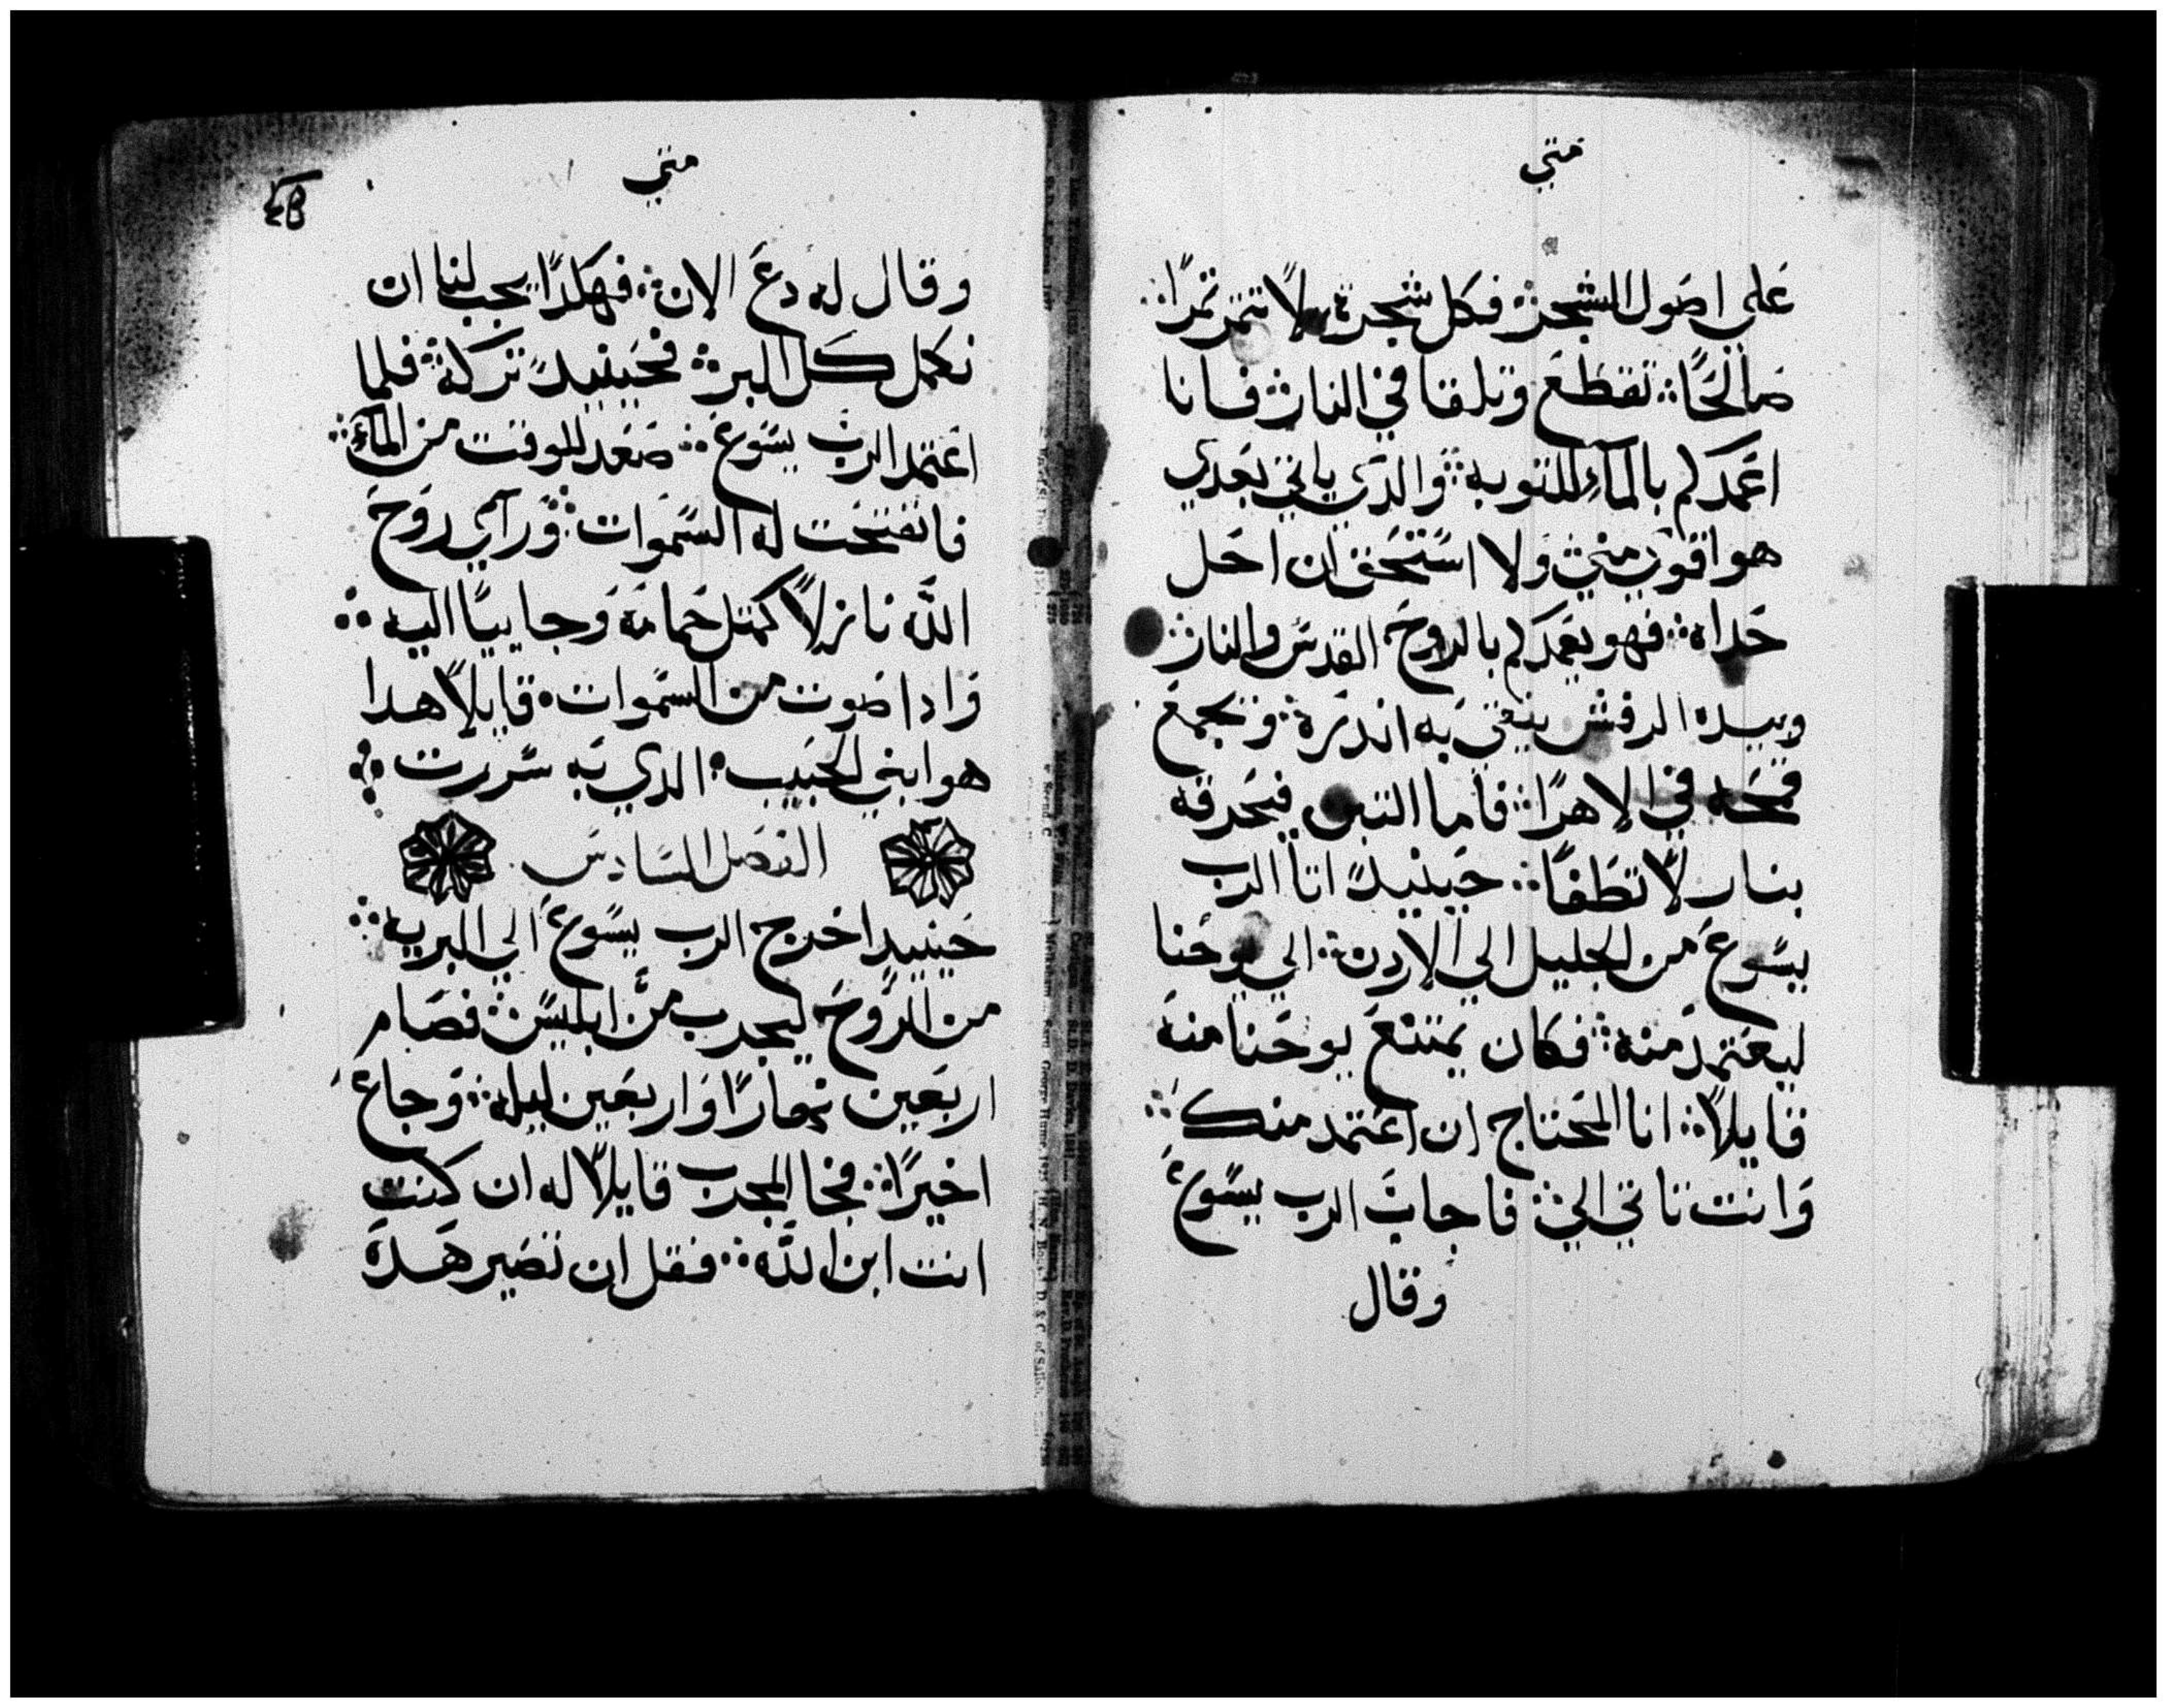 متي
علي اصول الشجر فكل شجرة لا تثمر ثمرًا
صالحًا تقطع وتلقا في النار فانا
اعمدكم بالمآءِ للتوبه والدي ياتي بعدي
هو اقوي مني ولا استحق ان احل
حداه فهو يعمدكم بالروح القدس والنار
وبيده الرفش ينقي به اندره ويجمع
قمحه في الاهرا فاما التبن فيحرقه
بنار لا تطفا حينيدً اتا الرب
يسوع من الجليل الي الاردن الي يوحنا
ليعتمد منه فكان يمتنع يوحنا منه
قايلاً انا المحتاج ان اعتمد منك
وانت تاتي الي فاجاب الرب يسوع
وقال
متي
وقال له دع الان فهكدا يجب لنا ان
نكمل كل البر فحينيدً تركه فلما
اعتمد الرب يسوع صعد للوقت من المآءِ
فانفتحت له السموات وراي روح
اللّه نازلاً كمتل حمامه وجاييًا اليه
وادا صوت من السموات قايلاً هدا
هو ابني الحبيب الدي به سررت
الفصل السادس
حينيدٍ اخرج الرب يسوع الي البريه
من الروح ليجرب من ابليس فصام
اربعين نهارًا واربعين ليله وجاع
اخيرًا فجا المجرب قايلاً له ان كنت
انت ابن اللّه فقل ان تصير هده